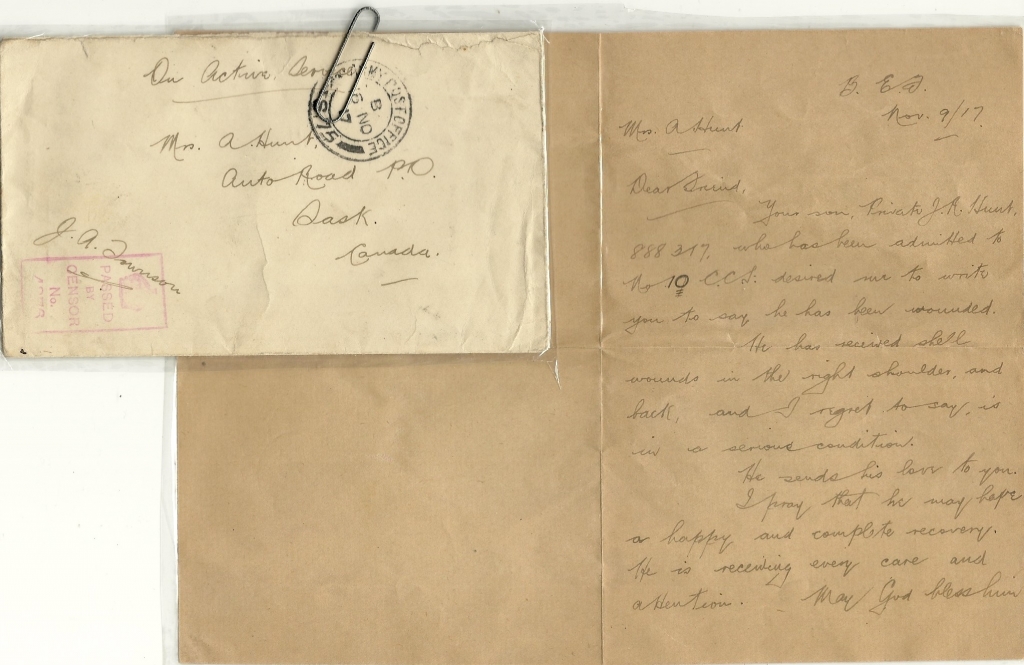 On Active Service
ARMY POST OFFICE
B
NO
17
S
75
Mrs. A. Hunt,
Auto Road P.O.
Sask.
Canada.
J. A. Townson
PASSED
BY
CENSOR
No.
B. E. F.
Nov. 9/17
Mrs. A Hunt
Dear Friend,
Your son, Private J. R. Hunt,
888317, who has been admitted to
No 10 C.C.S. desired me to write
you to say he has been wounded.
He has received shell
wounds in the right shoulder, and
back, and I regret to say, is
in a serious condition.
He sends his love to you.
I pray that he may have
a happy and complete recovery.
He is receiving every care and
attention. May God bless him